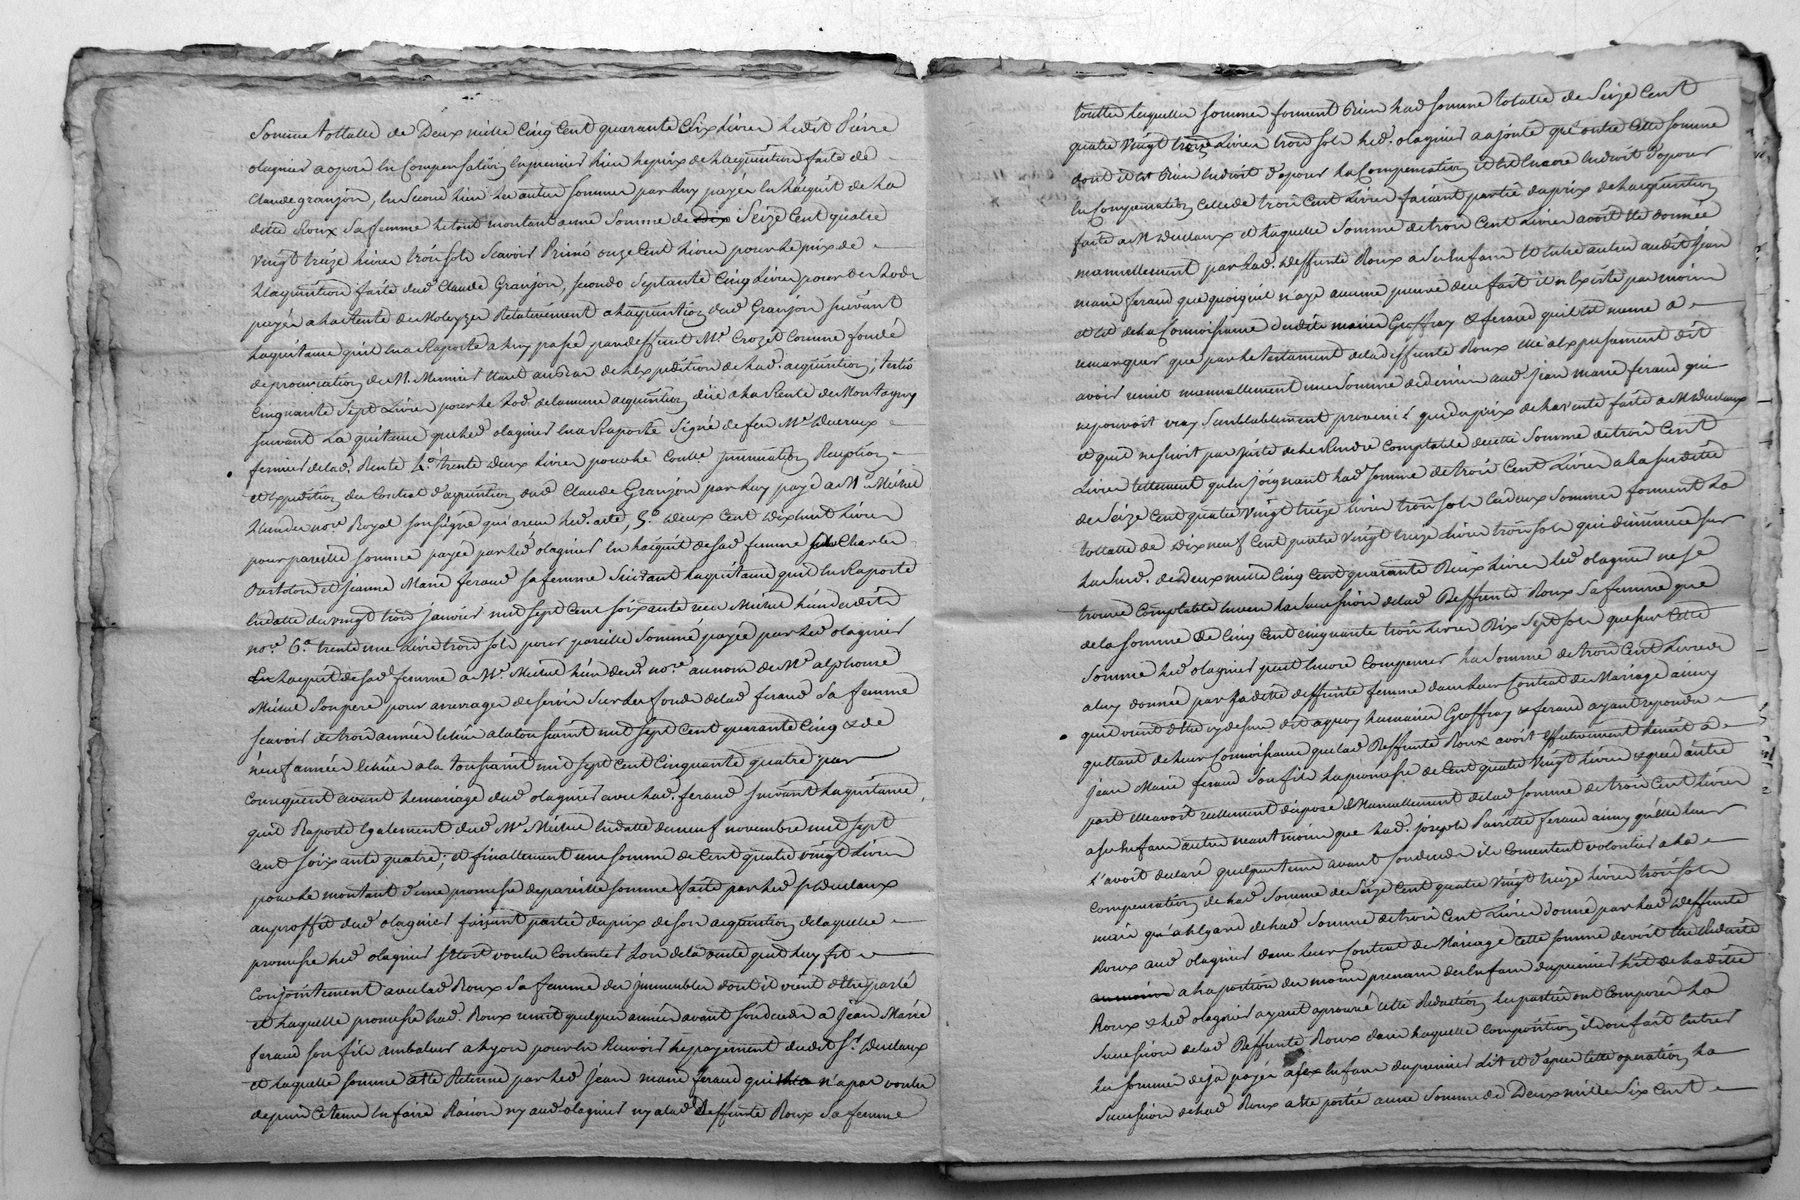 Somme tottalle de Deux mille Cinq Cent quarante Six Livres ledit Pierre
olagnier a oposé en Compensation en premier lieu le prix de l'acquisition faite de
Claude granjon, en second lieu les autres sommes par luy payées en l'acquit de la
ditte Roux sa femme le tout montant a une Somme de Seize Cent quatre
vingt treize livres trois sols Scavoir Primò onze Cent livres pour le prix de
l'acquisition faite dud Claude Granjon, secondo Septante Cinq Livres pour des Lods
payés a la Rente de relativement a l'acquisition dud Granjon suivant
la quittance qu'il en a Raporté a luy passé par deffunt Mr Crozet Comme fondé
de procuration de M. Meunier étant au bas de l'expedition de lad. acquisition; tertiò
Cinquante Sept Livres pour le Lod de la meme acquisition dûe a la Rente de Montagny
suivant La quittance que led olagnier en a Raporté Signé de feu Mr
fermier de lad. Rente 4.o trente deux Livres pour le Contle insinuation Reception
et Expedition du Contrat d'acquisition dud Claude Granjon par luy payé a Me Michel
nore Royal soussigné qui a reçu led. acte, 5.o Deux Cent dixhuit Livres
pour pareille somme payée par led olagnier en l'acquit de sad femme a Charles
et jeanne Marie feraud sa femme Suivant la quittance qu'il en Raporte
en datte du vingt trois janvier mil sept cent soixante reçu Michel l'un desdits
nore 6.o trente une Livre trois sols pour pareille Somme payée par led olagnier
En l'acquit de sad femme a Mr Michel l'un desd nore au nom de Mr alphonse
Michel Son pere pour arrerages de servis Sur les fonds de lad feraud Sa femme
scavoir de trois années echûes a la toussaint mil sept Cent quarante Cinq & de
neuf années echûes a la toussaint mil Sept Cent Cinquante quatre par
Consequent avant le mariage dud olagnier avec lad. feraud suivant la quittance
qu'il Raporte Egalement dud Mr Michel en datte du neuf novembre mil sept
Cent soixante quatre; et finallement une somme de Cent quatre vingt Livres
pour le montant d'une promesse de pareille somme faite par led sr Duclaux
au proffit dud olagnier faisant partie du prix de son acquisition de laquelle
promesse led olagnier s'étoit voulu Contenter Lors de la vente qu'il luy fit
Conjointement avec lad Roux Sa femme des jmmeubles dont il vient d'être parlé
et laquelle promesse lad. Roux remit quelques années avant son deceds a jean Marie
feraud son fils a Lyon pour en Recevoir le payement dudit Sr. Duclaux
et laquelle somme a été Retenue par led jean marie feraud qui n'a pas voulu
depuis ce tems en faire Raison ny aud olagnier ny a lad Deffunte Roux Sa femme
touttes lesquelles sommes forment Bien lad somme totalle de Seize Cent
quatre vingt treize Livres trois sols led. olagnier a ajouté qu'outre Cette somme
dont il est Bien endroit d'oposer la Compensation il est Encore endroit d'oposer
en Compensation celle de trois Cent Livres faisant partie du prix de l'acquisition
faite a M. Duclaux et laquelle Somme de trois Cent Livres avoit été donnée
manuellement par Lad. Deffunte Roux a ses Enfans et entre autres audit jean
marie feraud que quoiqu'il n'aye aucune preuve de ce fait il n'existe pas moins
et est de la Connoissance desdits mariés Groffray & feraud qu'il est meme a
remarquer que par le testament de la deffunte Roux elle a expressement dit
avoir remis manuellement une Somme de deniers aud. jean marie feraud qui
ne pouvoit vray Semblablement provenir que du prix de la vente faite a M. Duclaux
et qu'il ne seroit pas juste de le Rendre Comptable de cette Somme de trois Cent
Livres tellement qu'en joignant lad somme de trois Cent Livres a la susditte
de Seize Cent quatre vingt treize livres trois sols les deux Sommes forment La
tottalle de Dix neuf Cent quatre vingt treize Livres trois sols qui diminuée sur
la susd. de Deux mille Cinq Cent quarante Six Livres led olagnier ne se
trouve Comptable envers la Succession de lad Deffunte Roux Sa femme que
de la somme de Cinq Cent cinquante trois Livres Dix Sept sols que sur Cette
Somme led olagnier peut encore Compenser La Somme de trois Cent Livres
a luy donnée par sa ditte deffunte femme dans leur Contrat de Mariage ainsy
qu'il vient d'être cy dessus dit a quoy les mariés Groffray & feraud ayant repondu
qu'etant de leur Connoissance que lad Deffunte Roux avoit effectivement Remis a
jean Marie feraud Son fils la promesse de Cent quatre vingt livres & que d'autre
part elle avoit reellement disposé Manuellement de lad somme de trois Cent livres
a ses enfans autres neantmoins que lad. joseph Pierrette feraud ainsy qu'elle leur
l'avoit declaré quelque tems avant son deceds ils consentent volontiers a la
compensation de lad Somme de Seize Cent quatre vingt treize livres trois sols
mais qu'a l'egard de lad Somme de trois Cent Livres donnée par lad Deffunte
Roux aud olagnier dans leur Contrat de Mariage cette somme devoit être Reduitte
a la portion du moins prenant des Enfans du premier Lit de la ditte
Roux & led olagnier ayant aprouvé cette Reduction les parties ont Composé La
Succession de lad Deffunte Roux dans laquelle composition ils on fait Entrer
les sommes deja payées Enfans du premier dit et d'apres cette operation La
Succession de lad Roux a été portée a une Somme de Deux mille Six Cent